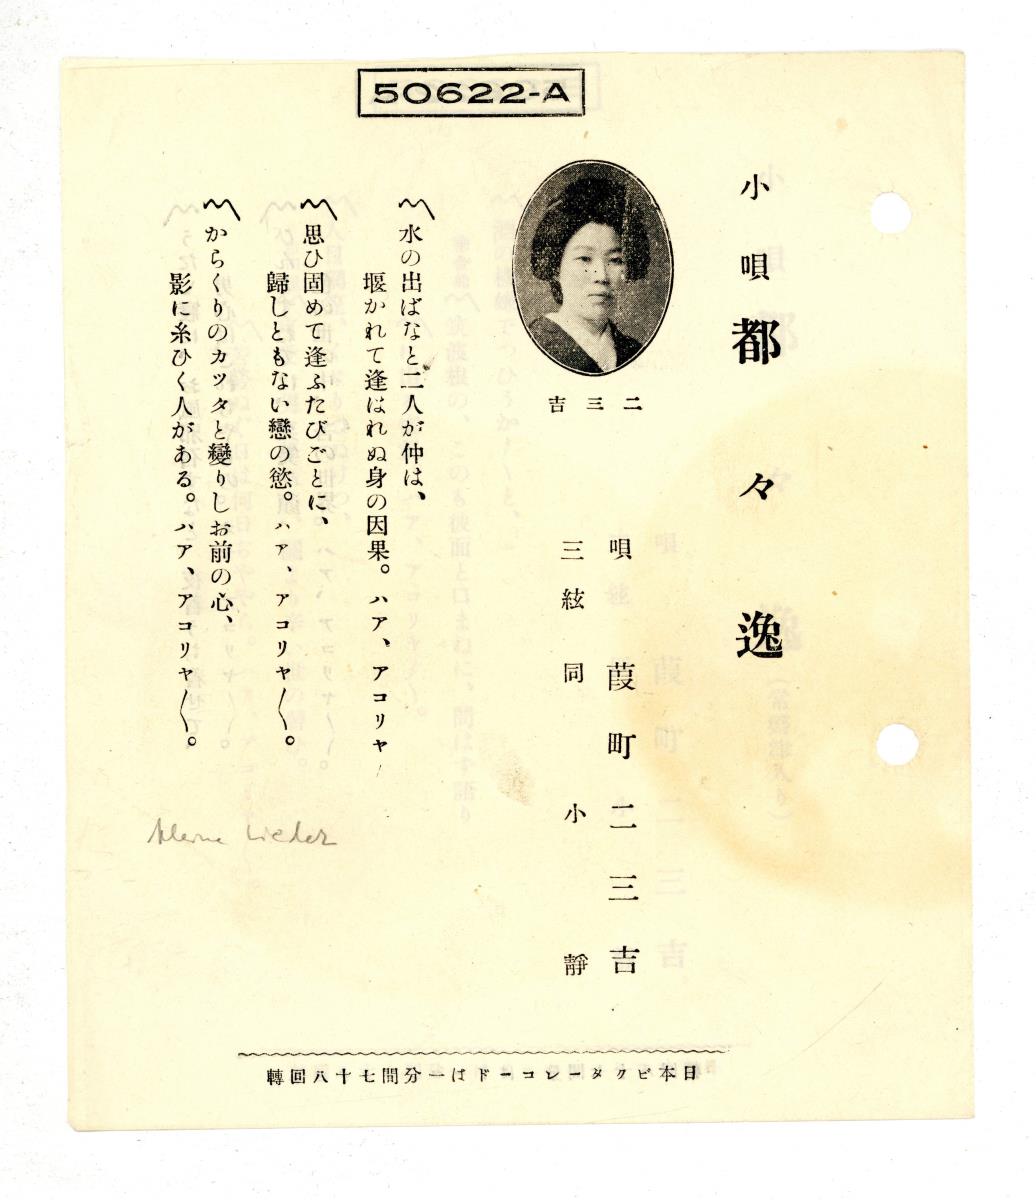 50622-A
小唄 都々逸
二三吉
唄 葭町二三吉
三絃 同 小靜
〽水の出ばなと二人が仲は、
堰かれて逢はれぬ身の因果。ハア、アコリヤ〳
〽思ひ固めて逢ふたびごとに、
歸しともない戀の慾。ハア、アコリヤ〳〵。
〽からくりのカツタと變りしお前の心、
影に糸ひく人がある。ハア、アコリヤ〳〵。
Kleine Lieder
日本ビクターレコードは一分間七十八回轉